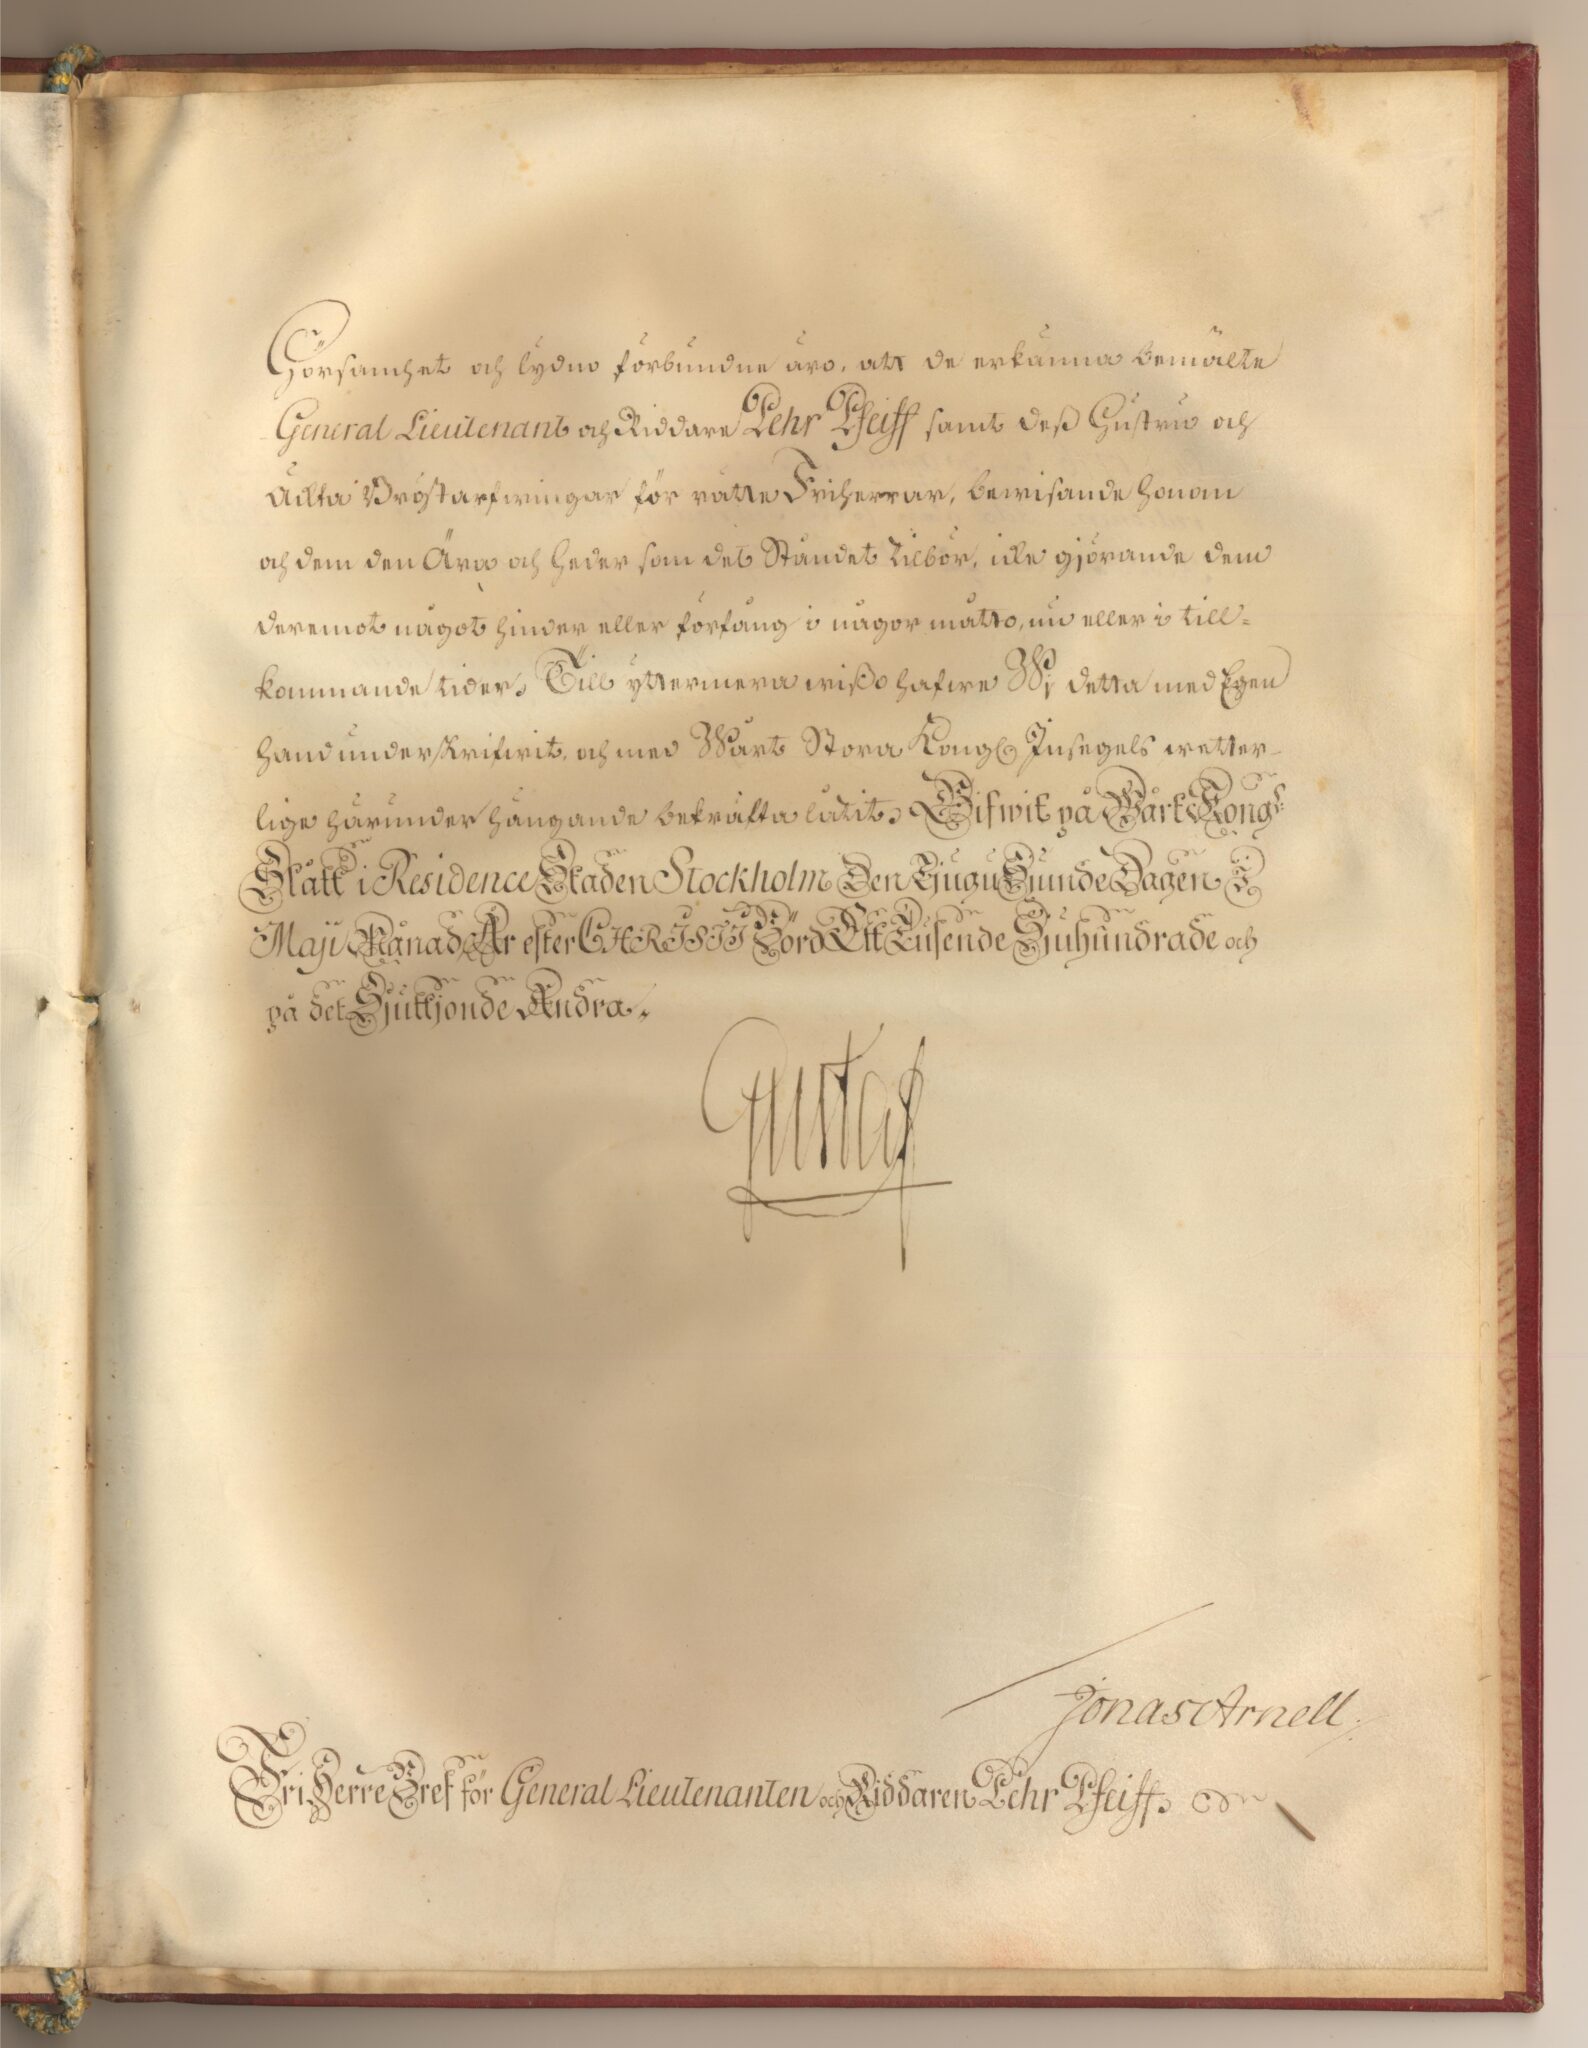 Hörsamhet och lydno förbundne äro, att de erkänna bemälte
General Lieutenant och Riddare Pehr Pfeiff samt deß Hustru och
äckta Bröstarfwingar för rätte Friherrar, bewisande honom
och dem den Äro och heder som det Ståndet tilbör, icke gjörande dem
deremot något hinder eller förfång i någor måtto, nu eller i till-
kommande tider. Till yttermera wißo hafwe Wi detta med Egen
hand underskrifwit, och med Wårt Stora Kongl. Insegels wetter-
lige härunder hängande bekräfta låtit. Gifwit på Wårt Kongl.
Slått i Residence Staden Stockholm Den Tjugu Sjunde Dagen I
Maji Månad År efter CHRISTI Börd Ett Tusende Sjuhundrade och
på det Sjuttjonde Andra.
Gustaf
Jonas Arnell.
Fri Herre Bref för General Lieutenanten och Riddaren Pehr Pfeiff.